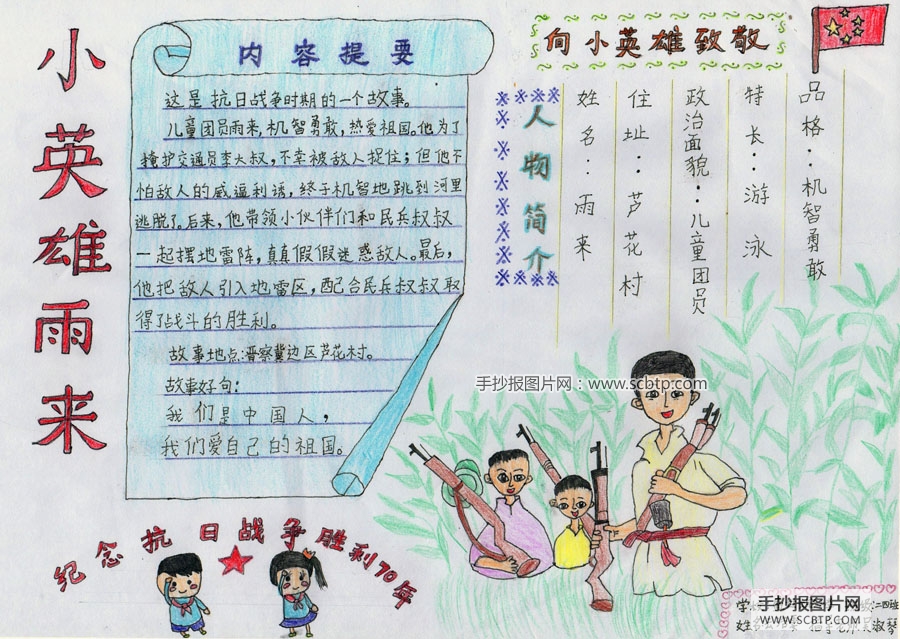 小英雄雨来
内容提要
这是抗日战争时期的一个故事。
儿童团员雨来,机智勇敢,热爱祖国。他为了
掩护交通员李大叔,不幸被敌人捉住;但他不
怕敌人的威逼利诱,终于机智地跳到河里
逃脱了。后来,他带领小伙伴们和民兵叔叔
一起摆地雷阵,真真假假迷惑敌人。最后,
他把敌人引入地雷区,配合民兵叔叔取
得了战斗的胜利。
故事地点:晋察冀边区芦花村。
故事好句:
我们是中国人,
我们爱自己的祖国。
向小英雄致敬
人物简介
姓名:雨来
住址:芦花村
政治面貌:儿童团员
特长:游泳
品格:机智勇敢
手抄报图片网:www.scbtp.com
纪念抗日战争胜利70年
手抄报图片网
WWW.SCBTP.COM
学
二四班
姓
淑琴